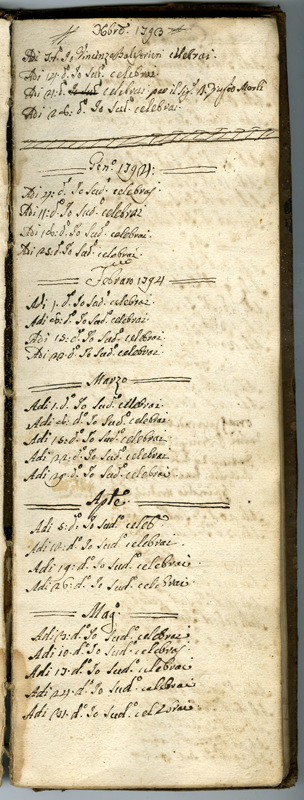 Xbre 1793
Adi 7. d.o Io Vincenzo Balestrieri celebrai.
Adi 14. d.o Io Sud.o celebrai
Adi 21. d.o Io Sud.o celebrai per il Sig.r D. Merli
Adi 26. d.o Io Sud.o celebrai
Gen.o 1794:
Adi d.o Io Sud.o celebrai
Adi 11. d.o Io Sud.o celebrai
Adi 18. d.o Io Sud.o celebrai
Adi 25. d.o Io Sud.o celebrai
Febraro 1794
Adi 1. d.o Io Sud.o celebrai
Adi 8. d.o Io Sud.o celebrai
Adi 15. d.o Io Sud.o celebrai
Adi 22. d.o Io Sud.o celebrai
Marzo
Adi 1. d.o Io Sud.o celebrai
Adi 8. d.o Io Sud.o celebrai.
Adi 15. d.o Io Sud.o celebrai.
Adi 22. d.o Io Sud.o celebrai.
Adi 29. d.o Io Sud.o celebrai
Aple.
Adi 5. d.o Io Sud.o celeb.
Adi 12. d.o Io Sud.o celebrai.
Adi 19. d.o Io Sud.o celebrai
Adi 26. d.o Io Sud.o celebrai.
Mag.o
Adi 3. d.o Io Sud.o celebrai
Adi 10. d.o Io Sud.o celebrai
Adi 17. d.o Io Sud.o celebrai
Adi 24. d.o Io Sud.o celebrai
Adi 31. d.o Io Sud.o celebrai